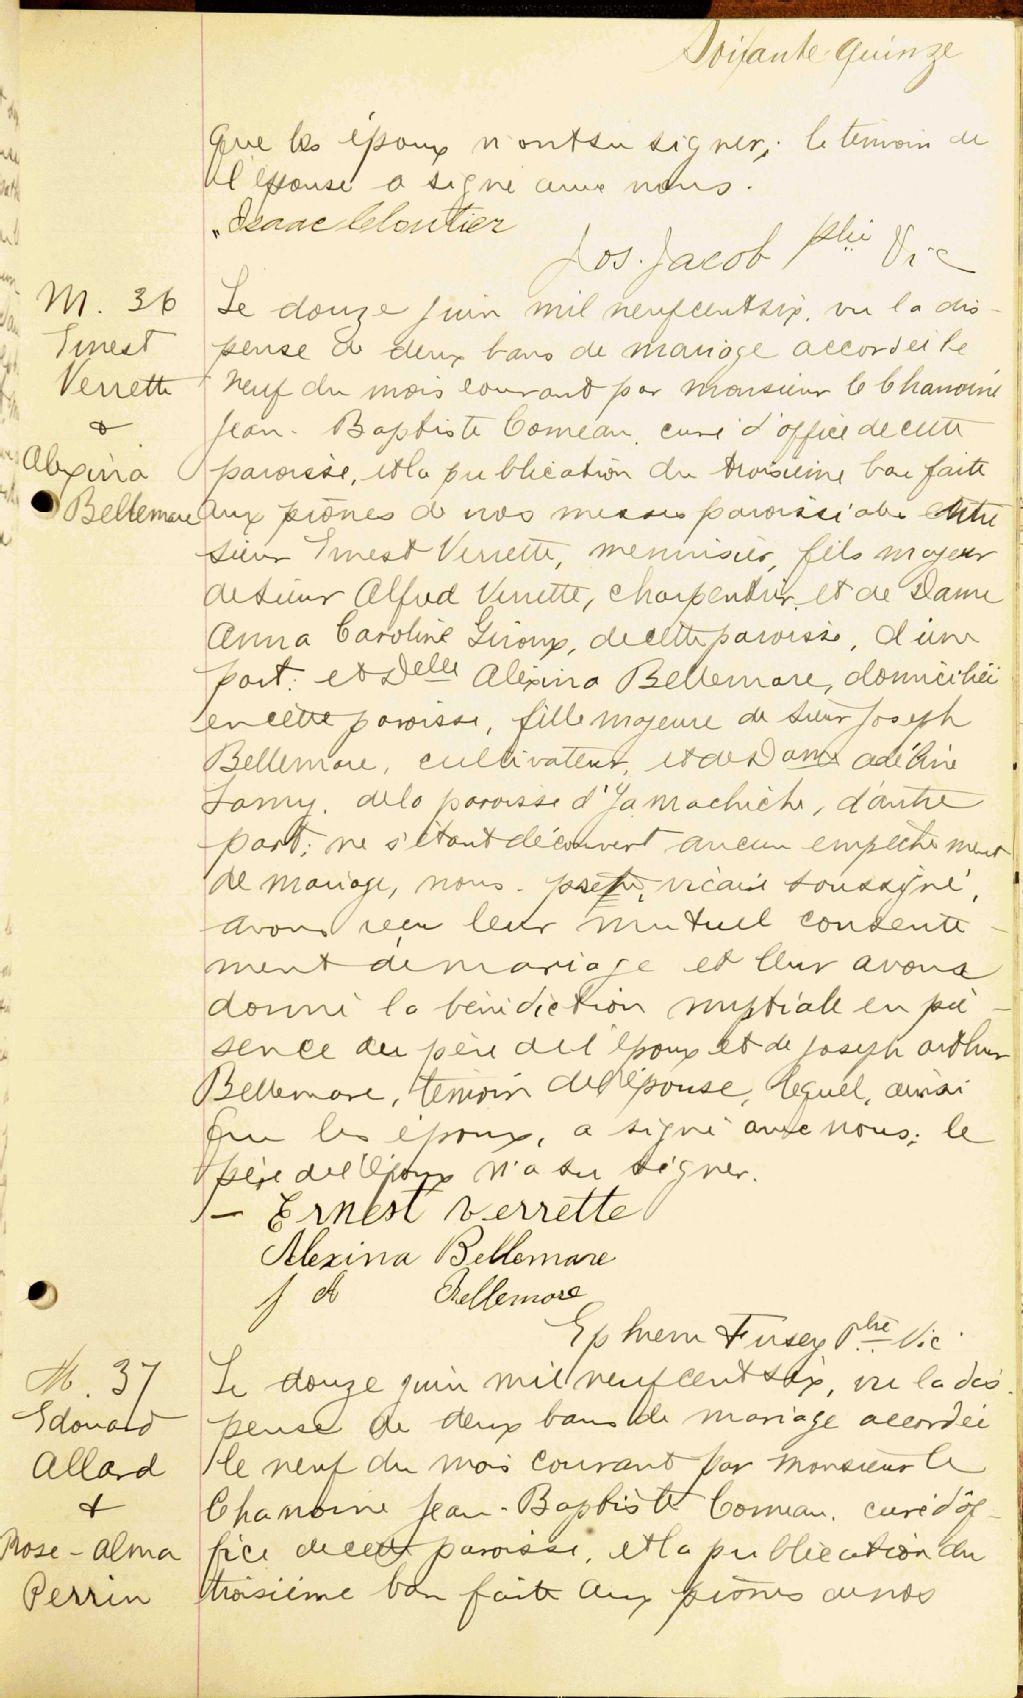 Soixante quinze
que les époux n'ont su signer; le témoin de
l'épouse a signé avec nous.
"Isaac Cloutier
Jos. Jacob ptre Vic
M. 36
Ernest
Verrette
&
Alexina
Bellemare
Le douze juin mil neuf cent six, vu la dis-
pense de deux bans de mariage accordée le
neuf du mois courant par monsieur le Chanoine
Jean-Baptiste Comeau, curé d'office de cette
paroisse, et la publication du troisième ban faite
aux prônes de nos messes paroissiales entre
sieur Ernest Verrette, menuisier, fils majeur
de sieur Alfred Verrette, charpentier, et de Dame
Anna Caroline Giroux, de cette paroisse, d'une
part: et Delle Alexina Bellemare, domiciliée
en cette paroisse, fille majeure de sieur Joseph
Bellemare, cultivateur, et de Dame Adéline
Lamy, de la paroisse d'Yamachiche, d'autre
part; ne s'étant découvert aucun empêchement
de mariage, nous, prêtre, vicaire soussigné,
avons reçu leur mutuel consente-
ment de mariage et leur avons
donné la bénédiction nuptiale en pré-
sence du père de l'époux et de Joseph Arthur
Bellemare, témoin de l'épouse, lequel, ainsi
que les époux, a signé avec nous; le
père de l'époux n'a su signer.
- Ernest Verrette
Alexina Bellemare
J A Bellemare
Ephrem Fusey Ptre Vic.
M. 37
Edouard
Allard
&
Rose-Alma
Perrin
Le douze juin mil neuf cent six, vu la dis-
pense de deux bans de mariage accordée
le neuf du mois courant par monsieur le
Chanoine Jean-Baptiste Comeau, curé d'of-
fice de cette paroisse, et la publication du
troisième ban faite aux prônes de nos